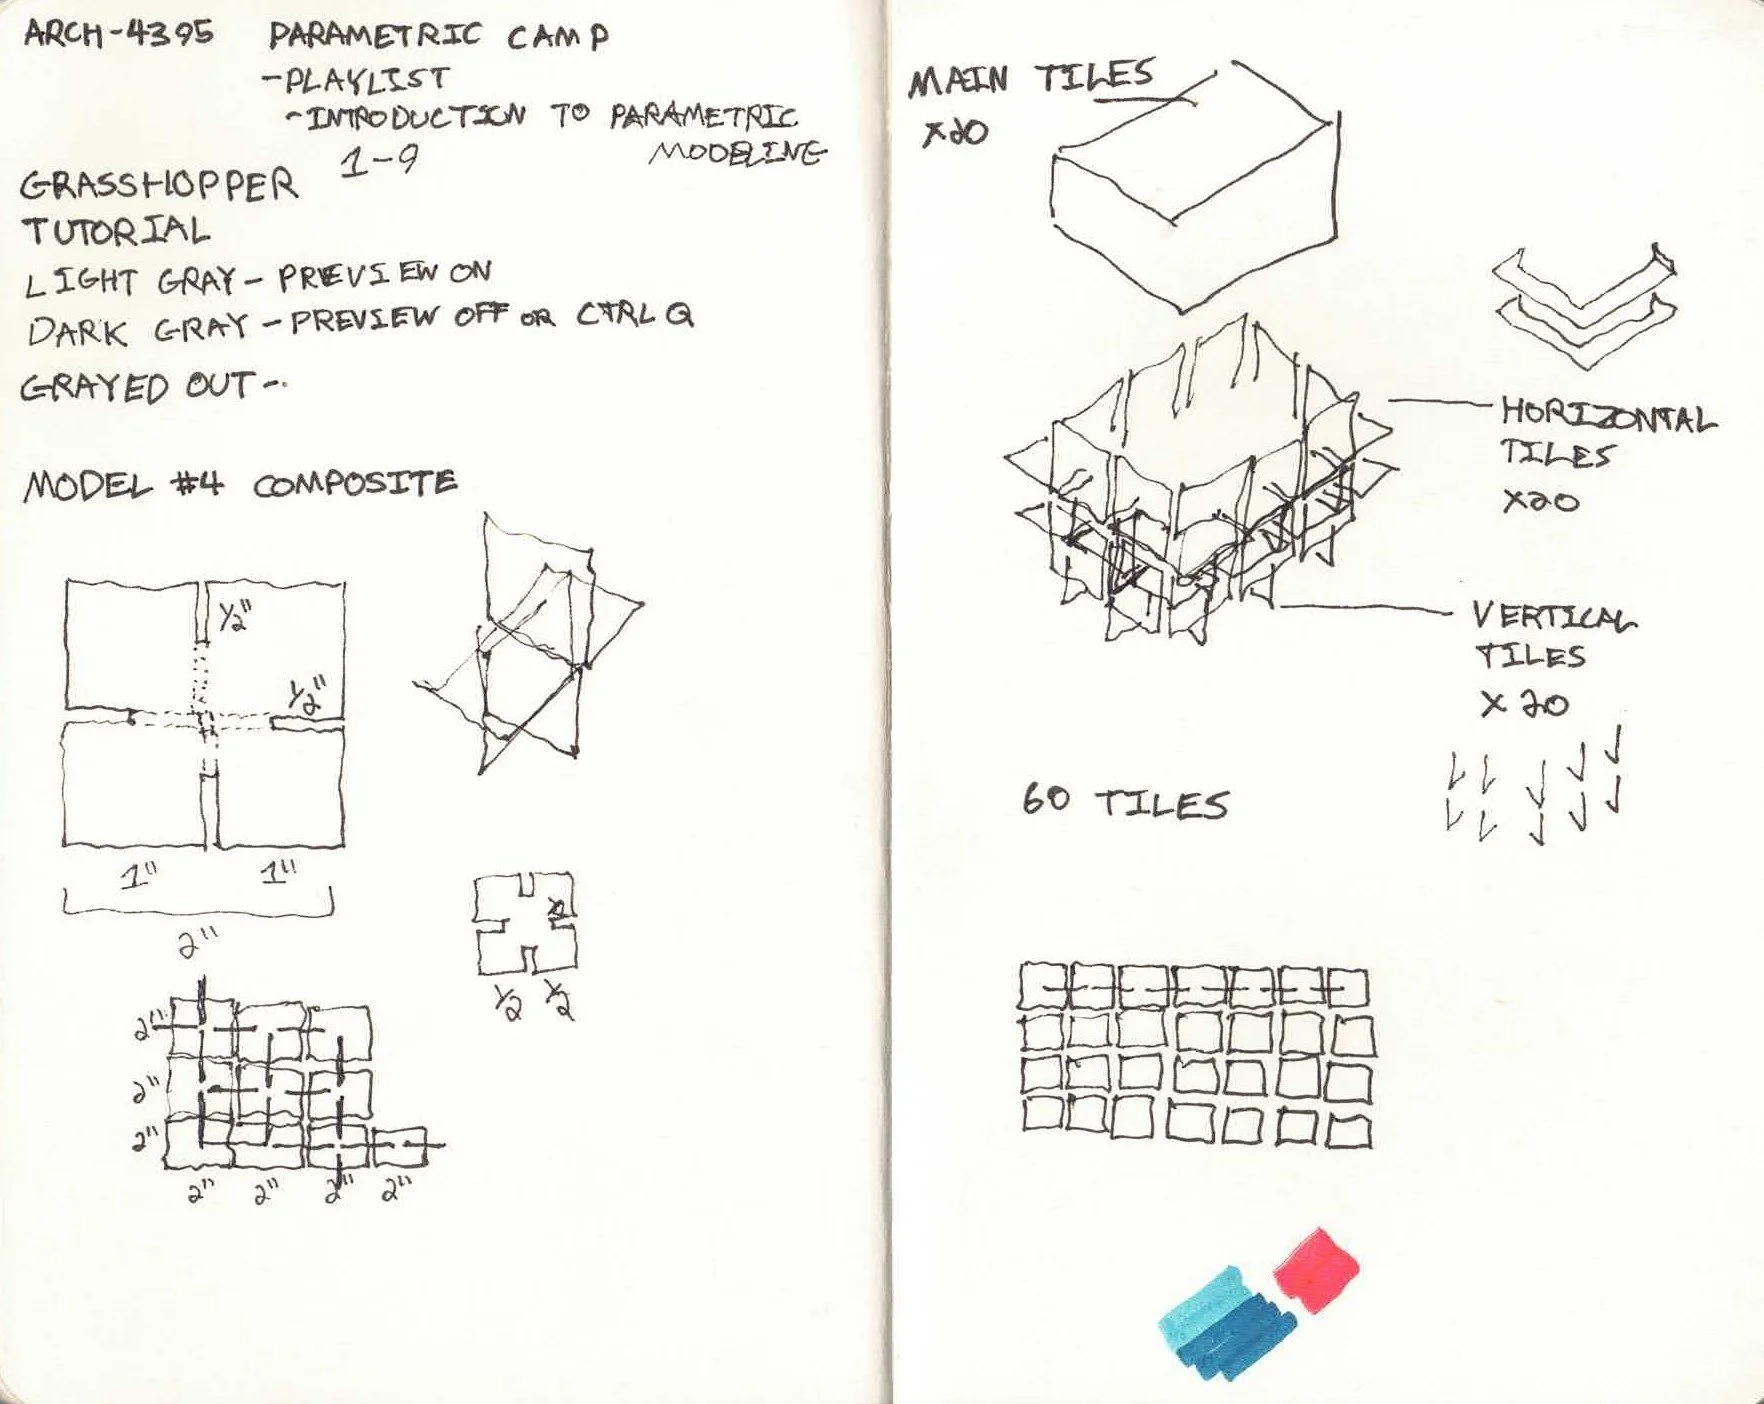 ARCH-4395 PARAMETRIC CAMP
-PLAYLIST
-INTRODUCTION TO PARAMETRIC
MODELING
1-9
GRASSHOPPER
TUTORIAL
LIGHT GRAY - PREVIEW ON
DARK GRAY - PREVIEW OFF OR CTRL Q
GRAYED OUT -
MODEL #4 COMPOSITE
1/2"
1/2"
1" 1"
2"
1/2 1/2
2"
2"
2"
2" 2" 2" 2"
MAIN TILES
x20
HORIZONTAL
TILES
x20
VERTICAL
TILES
x 20
60 TILES